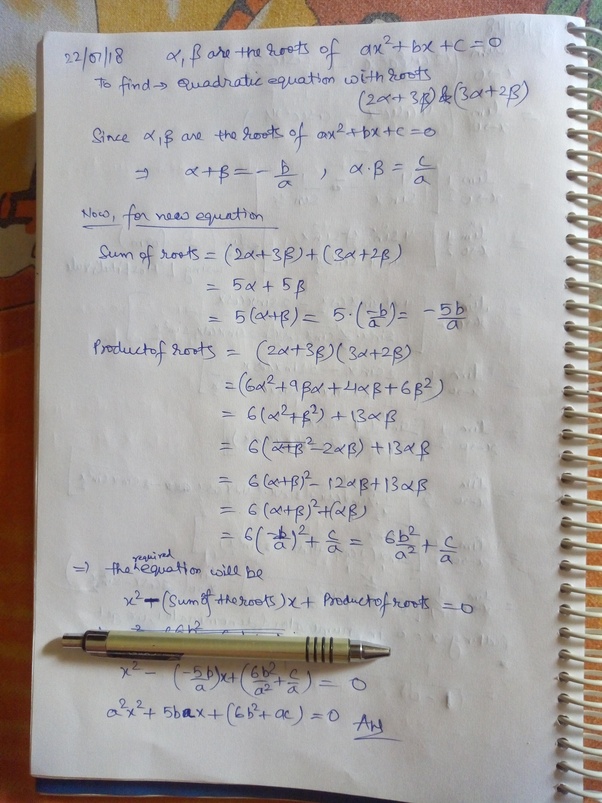 22/07/18 α, β are the roots of ax²+bx+c=0
To find → Quadratic equation with roots
(2α+3β) & (3α+2β)
Since α, β are the roots of ax²+bx+c=0
⇒ α+β = -b/a , α.β = c/a
Now, for new equation
Sum of roots = (2α+3β)+(3α+2β)
= 5α + 5β
= 5(α+β) = 5·(-b/a) = -5b/a
Product of roots = (2α+3β)(3α+2β)
=(6α²+9βα+4αβ+6β²)
= 6(α²+β²) + 13αβ
= 6(α+β² -2αβ) + 13αβ
= 6(α+β)² - 12αβ+13αβ
= 6(α+β)²+(αβ)
= 6(-b/a)² + c/a = 6b²/a² + c/a
⇒ the required equation will be
x² - (Sum of the roots)x + Product of roots = 0
x² - (-5b/a)x + (6b²/a² + c/a) = 0
a²x² + 5bax + (6b²+ac) = 0 Ans